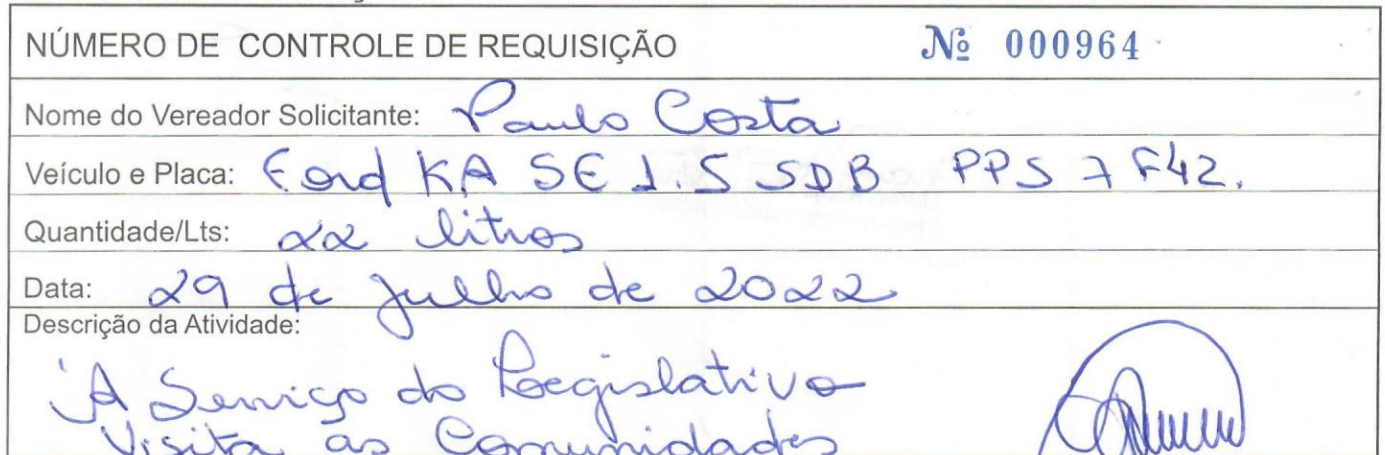 NÚMERO DE CONTROLE DE REQUISIÇÃO Nº 000964
Nome do Vereador Solicitante: Paulo Costa
Veículo e Placa: Ford KA SE 1.5 SDB PPS 7F42.
Quantidade/Lts: 22 litros
Data: 29 de Julho de 2022
Descrição da Atividade:
À Serviço do Legislativo
Visita as Comunidades